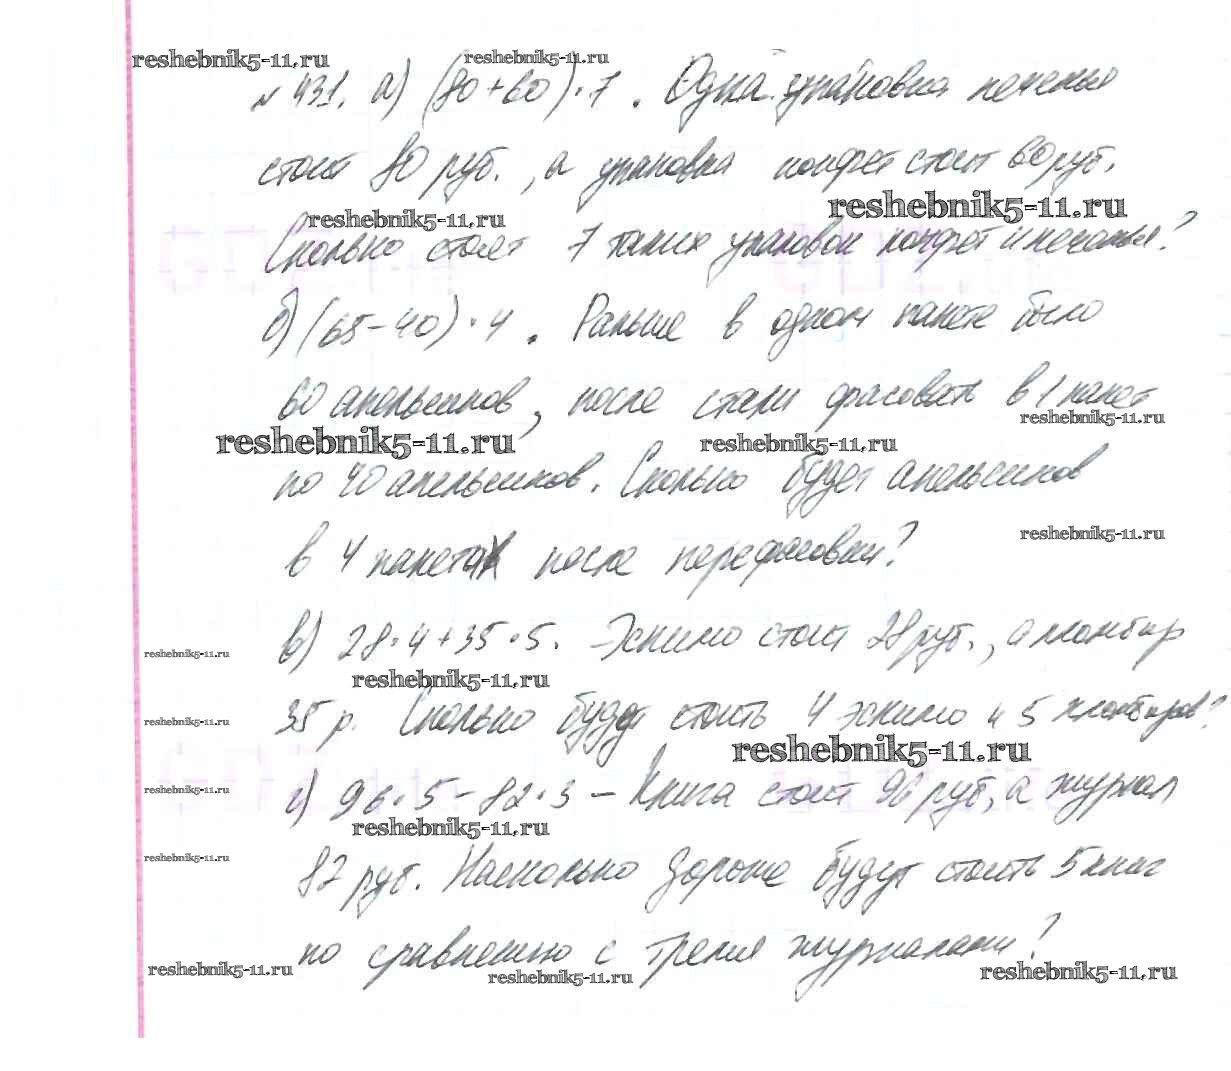 reshebnik5-11.ru reshebnik5-11.ru
№ 431. а) (80+60)·7. Одна упаковка печенья
стоит 80 руб., а упаковка конфет стоит 60 руб.
reshebnik5-11.ru reshebnik5-11.ru
Сколько стоят 7 таких упаковок конфет и печенья?
б) (65-40)·4. Раньше в одном пакете было
60 апельсинов, после стали фасовать в 1 пакет
reshebnik5-11.ru reshebnik5-11.ru reshebnik5-11.ru
по 40 апельсинов. Сколько будет апельсинов
reshebnik5-11.ru
в 4 пакетах после перефасовки?
в) 28·4+35·5. Эскимо стоит 28 руб., а пломбир
reshebnik5-11.ru reshebnik5-11.ru
35 р. Сколько будет стоить 4 эскимо и 5 пломбиров?
reshebnik5-11.ru reshebnik5-11.ru
г) 96·5-82·3 - Книга стоит 96 руб, а журнал
reshebnik5-11.ru reshebnik5-11.ru
82 руб. Насколько дороже будут стоить 5 книг
reshebnik5-11.ru
по сравнению с тремя журналами?
reshebnik5-11.ru reshebnik5-11.ru reshebnik5-11.ru